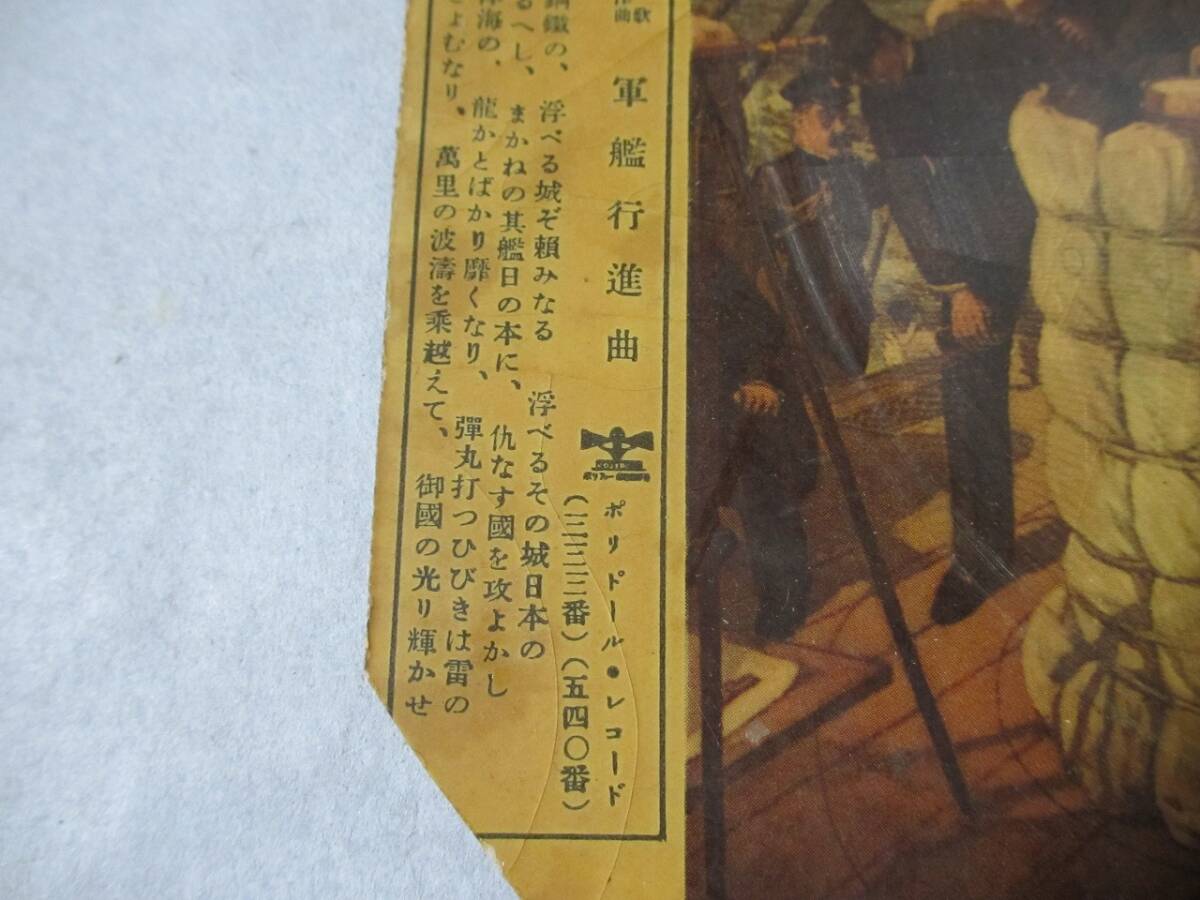 軍艦行進曲
ポリドール・レコード
(三三三番)(五四〇番)
鐵の、浮べる城ぞ頼みなる 浮べるその城日本の
るべし、まかねの其艦日の本に、仇なす國を攻よかし
海の、龍かとばかり靡くなり、彈丸打つひびきは雷の
よむなり、萬里の波濤を乘越えて、御國の光り輝かせ